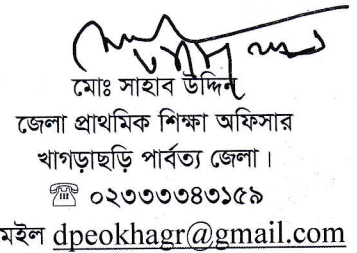 মোঃ সাহাব উদ্দিন
জেলা প্রাথমিক শিক্ষা অফিসার
খাগড়াছড়ি পার্বত্য জেলা ।
☎ ০২৩৩৩৩৪৩১৫৯
মইল dpeokhagr@gmail.com